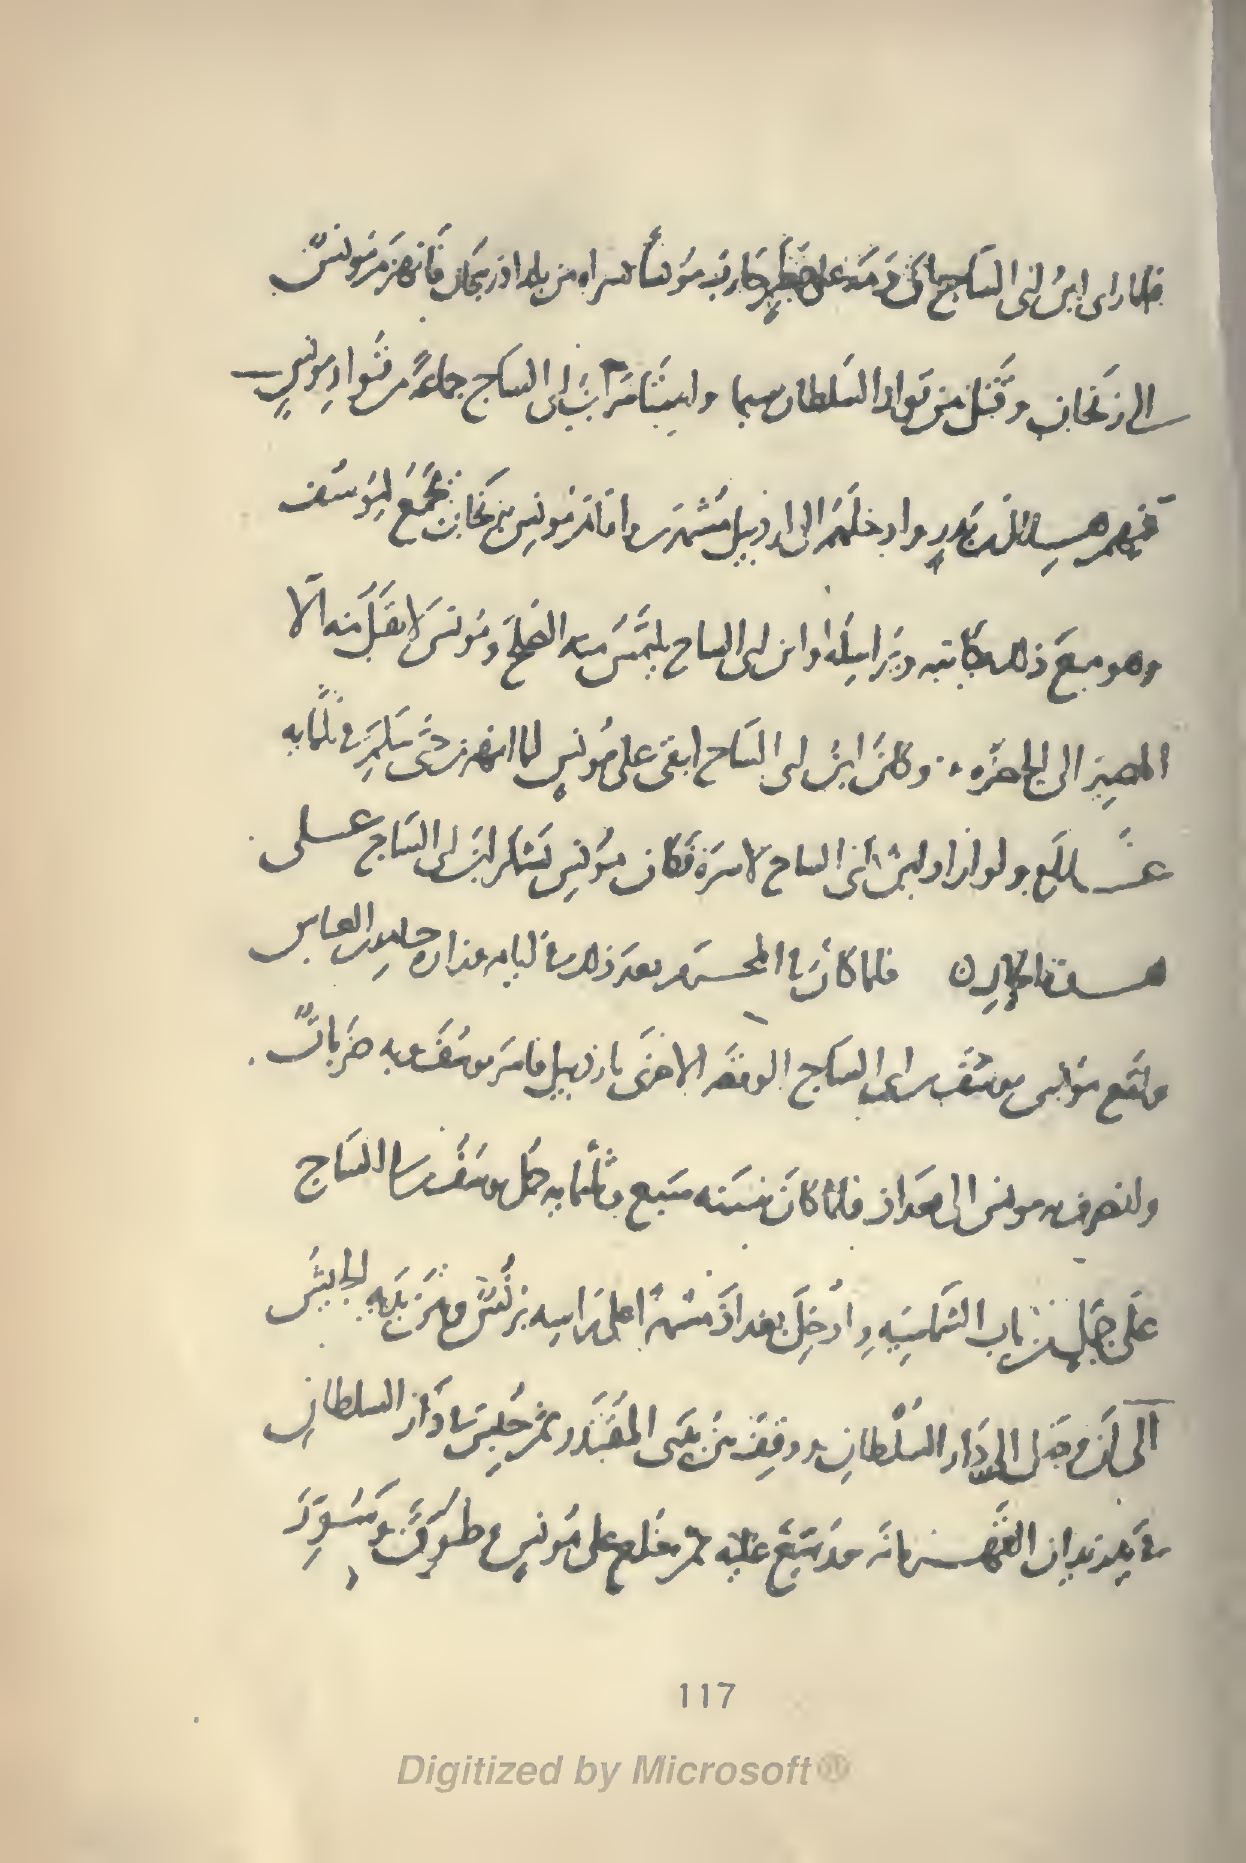 فلما راى ابن ابى الساج انّ دمه على خطر حارب مؤنسا بسراه من بلد اذربيجان فانهزم مونس
الى زنجان وقتل من قواد السلطان سيما واستأسر ابن ابى الساج جماعةً من قواد مونس
فيهم هلال بن بدر وادخلهم الى اردبيل مشهرين واقام مونس بزنجان يجمع ليوسف
وهو مع ذلك يكاتبه ويراسله وابن ابى الساج يلتمس منه الصلح ومونس لا يقبل منه الّا
المصير الى الحضره وكان ابن ابى الساج ابقى على مونس لما انهزم حتى سلم فى ثلثمايه
غلام ولو اراد ابن ابى الساج لاسره فكان مؤنس يشكر ابن ابى الساج على
هذا فلما كان فى المحرم بعد ذلك فى ايام وزاره حامد بن العباس
واقع مؤنس يوسف بن ابى الساج الوقعه الاخرى باردبيل فاسر يوسف وبه ضربات
وانصرف به مونس الى بغداذ فلما كان سنه سبع وثلثمايه حمل يوسف بن ابى الساج
على جمل من باب الشماسيه وادخل بغداذ مشهرا على راسه برنس وبين يديه الجيش
الى ان وصل الى دار السلطان ووقف بين يدى المقتدر ثم حبس فى دار السلطان
فى يد زيدان القهرمانه ووسع عليه ثم خلع على مونس وطوق وسور
117
Digitized by Microsoft®